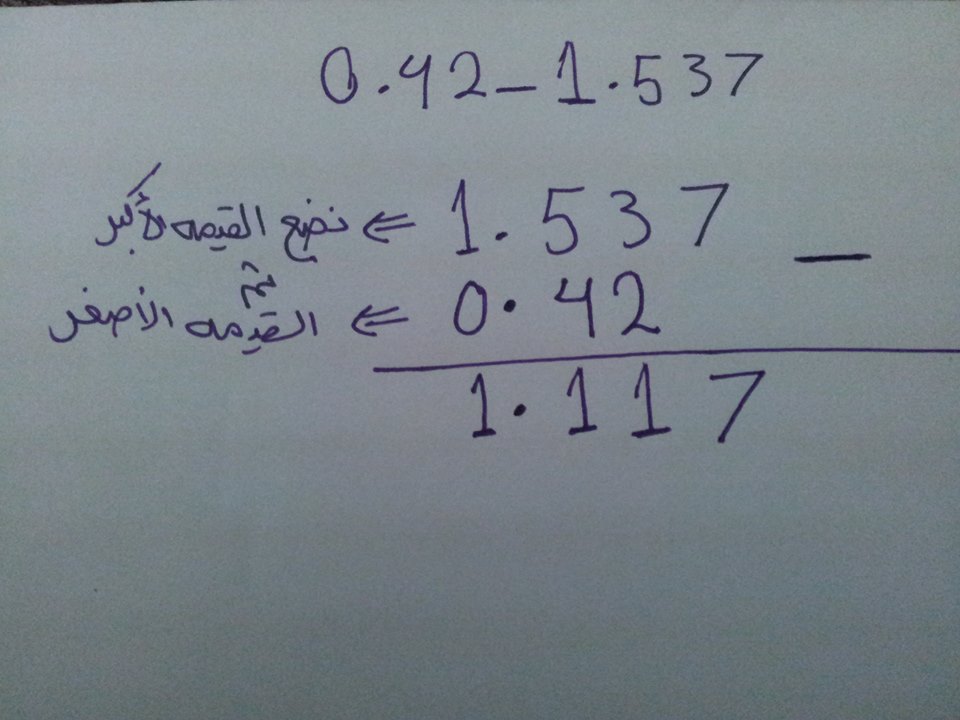 0.42 - 1.537
نضع القيمه الأكبر ⇐ 1.537 -
ثم
القيمه الأصغر ⇐ 0.42
1.117